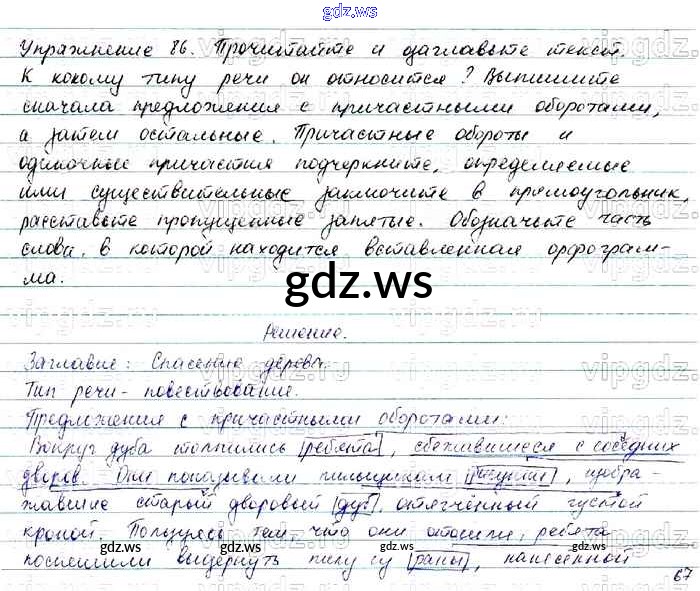 gdz.ws
Упражнение 86. Прочитайте и озаглавьте текст.
К какому типу речи он относится? Выпишите
сначала предложения с причастными оборотами,
а затем остальные. Причастные обороты и
одиночные причастия подчеркните, определяемые
ими существительные заключите в прямоугольник,
расставьте пропущенные запятые. Обозначьте часть
слова, в которой находится вставленная орфограм-
ма.
gdz.ws
Решение.
Заглавие: Спасение дерева.
Тип речи - повествование.
Предложения с причастными оборотами:
Вокруг дуба толпились ребята, сбежавшиеся с соседних
дворов. Они показывали пильщикам рисунки, изобра-
жавшие старый дворовой дуб, отягчённый густой
кроной. Пользуясь тем, что они отошли, ребята
поспешили выдернуть пилу из раны, нанесённой
gdz.ws gdz.ws gdz.ws
67